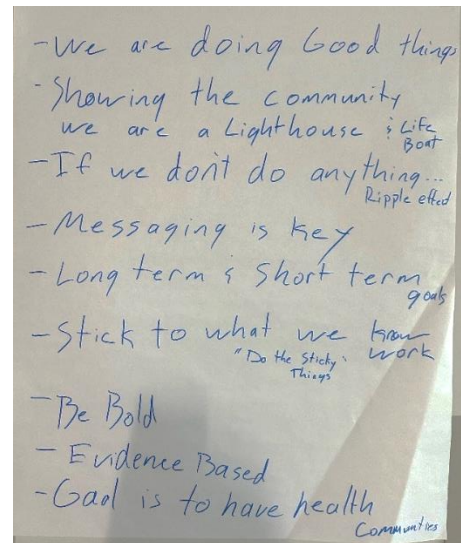 - We are doing Good things
- Showing the community
we are a Lighthouse & Life
Boat
- If we don't do anything...
Ripple effect
- Messaging is key
- Long term & Short term
goals
- Stick to what we know
"Do the Sticky work
Things
- Be Bold
- Evidence Based
- Goal is to have health
Communities